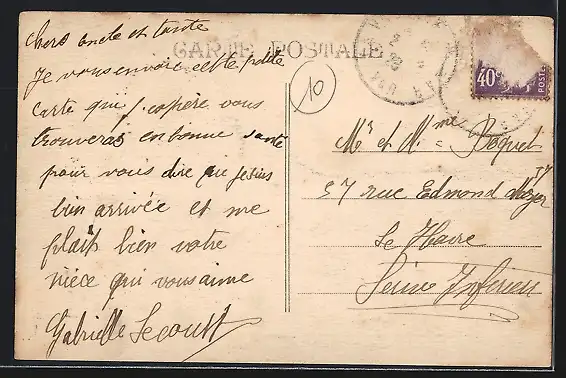 CARTE POSTALE
chers oncle et tante
Je vous envoie cette petite
carte qui j'espère vous
trouveras en bonne santé
pour vous dire que je suis
bien arrivée et me
plait bien votre
nièce qui vous aime
Gabrielle
10
40c
POSTES
Mr et Mme
57 rue Edmond
Le Havre
Seine Inferieu